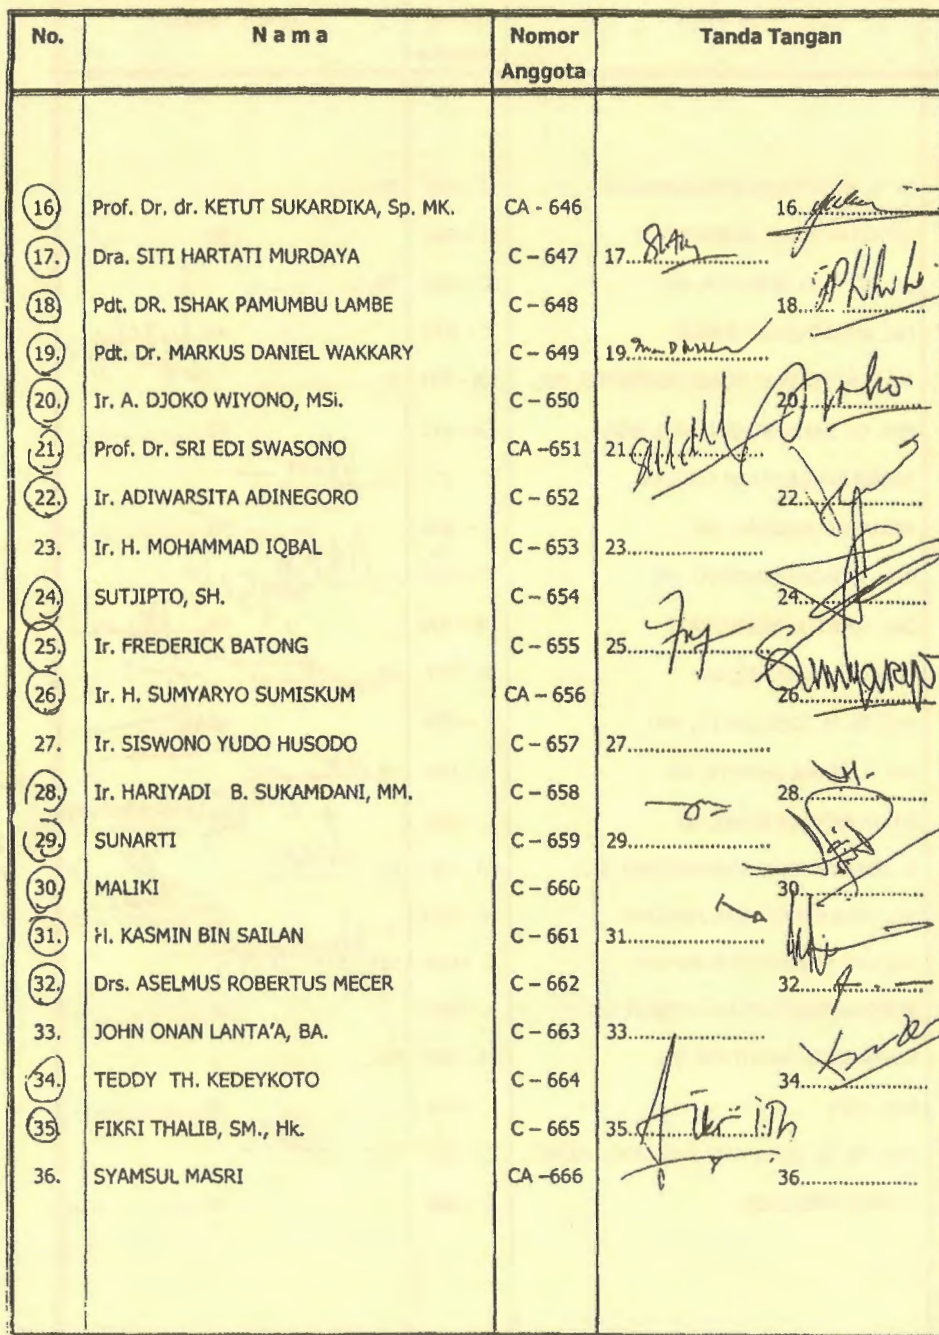 No. N a m a Nomor Anggota Tanda Tangan
16. Prof. Dr. dr. KETUT SUKARDIKA, Sp. MK. CA - 646 16...................
17. Dra. SITI HARTATI MURDAYA C – 647 17...................
18. Pdt. DR. ISHAK PAMUMBU LAMBE C – 648 18...................
19. Pdt. Dr. MARKUS DANIEL WAKKARY C – 649 19...................
20. Ir. A. DJOKO WIYONO, MSi. C – 650 20...................
21. Prof. Dr. SRI EDI SWASONO CA –651 21...................
22. Ir. ADIWARSITA ADINEGORO C – 652 22...................
23. Ir. H. MOHAMMAD IQBAL C – 653 23...................
24. SUTJIPTO, SH. C – 654 24...................
25. Ir. FREDERICK BATONG C – 655 25...................
26. Ir. H. SUMYARYO SUMISKUM CA – 656 26................... Sumyaryo
27. Ir. SISWONO YUDO HUSODO C – 657 27...................
28. Ir. HARIYADI B. SUKAMDANI, MM. C – 658 28...................
29. SUNARTI C – 659 29...................
30. MALIKI C – 660 30...................
31. H. KASMIN BIN SAILAN C – 661 31...................
32. Drs. ASELMUS ROBERTUS MECER C – 662 32...................
33. JOHN ONAN LANTA'A, BA. C – 663 33...................
34. TEDDY TH. KEDEYKOTO C – 664 34...................
35. FIKRI THALIB, SM., Hk. C – 665 35...................
36. SYAMSUL MASRI CA –666 36...................